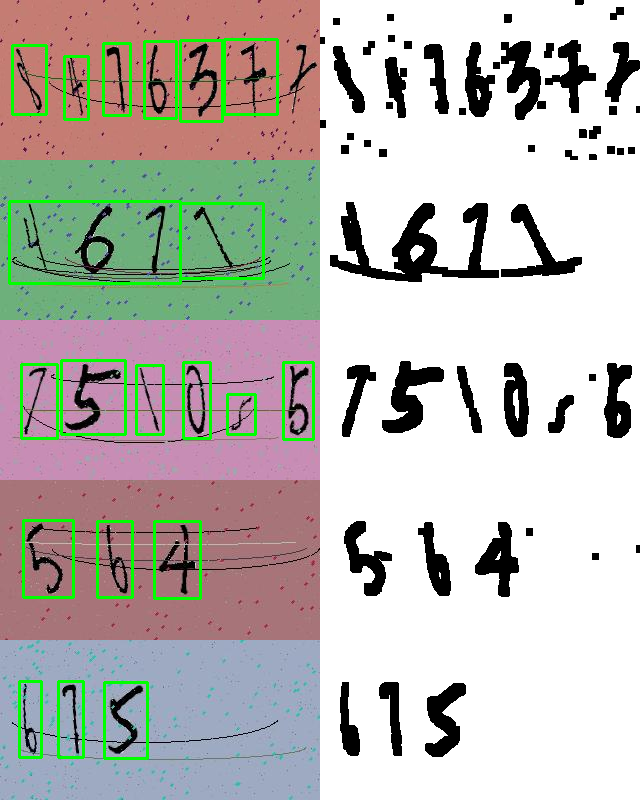 8476377 8476377
4671 4671
751055 751055
564 564
675 675